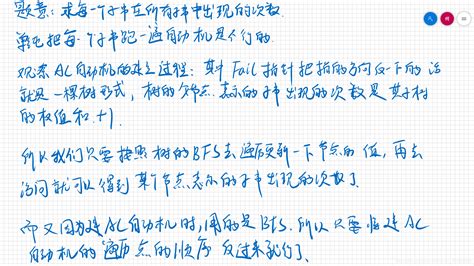 题意：求每一个子串在所有子串中出现的次数.
单纯把每一个子串跑一遍自动机是不行的.
观察AC自动机的建立过程：其中Fail指针把指的方向反一下的话
就是一棵树形式，树的节点表示的子串出现的次数是其子树
的权值和+1.
所以我们只要按照树的BFS去遍历更新一下节点的值，再去
访问就可以得到某个节点表示的子串出现的次数了.
而又因为建AC自动机时，用的是BFS.所以只要将建AC
自动机的遍历点的顺序反过来就行了.